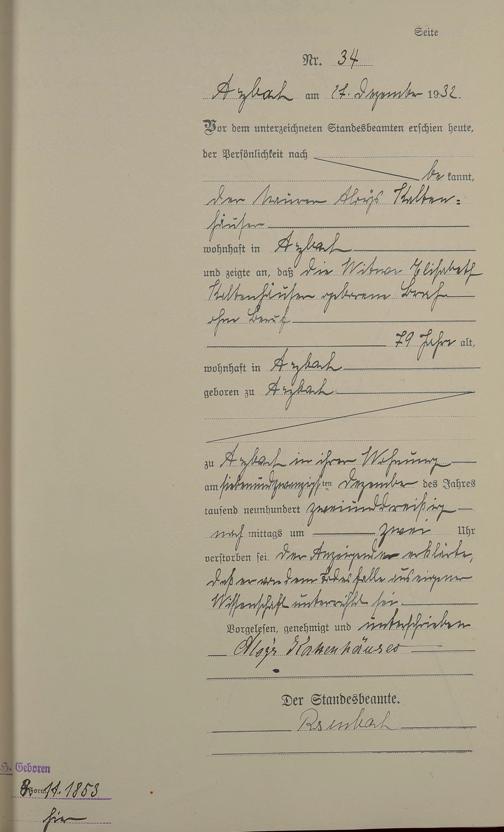 Seite
Nr. 34
Arzbach am 27. Dezember 1932.
Vor dem unterzeichneten Standesbeamten erschien heute,
der Persönlichkeit nach
be kannt,
der Maurer Aloys Kalten=
häuser
wohnhaft in Arzbach
und zeigte an, daß die Witwe Elisabeth
Kaltenhäuser geborene
ohne Beruf
79 Jahre alt,
wohnhaft in Arzbach
geboren zu Arzbach
zu Arzbach in ihrer Wohnung
am siebenundzwanzigsten Dezember des Jahres
tausend neunhundert zweiunddreißig
nachmittags um zwei Uhr
verstorben sei. Der Anzeigende erklärte,
daß er von dem Todesfalle aus eigener
Wissenschaft unterrichtet sei.
Vorgelesen, genehmigt und unterschrieben
Aloys Kaltenhäuser
Der Standesbeamte.
Geboren
1853
hier